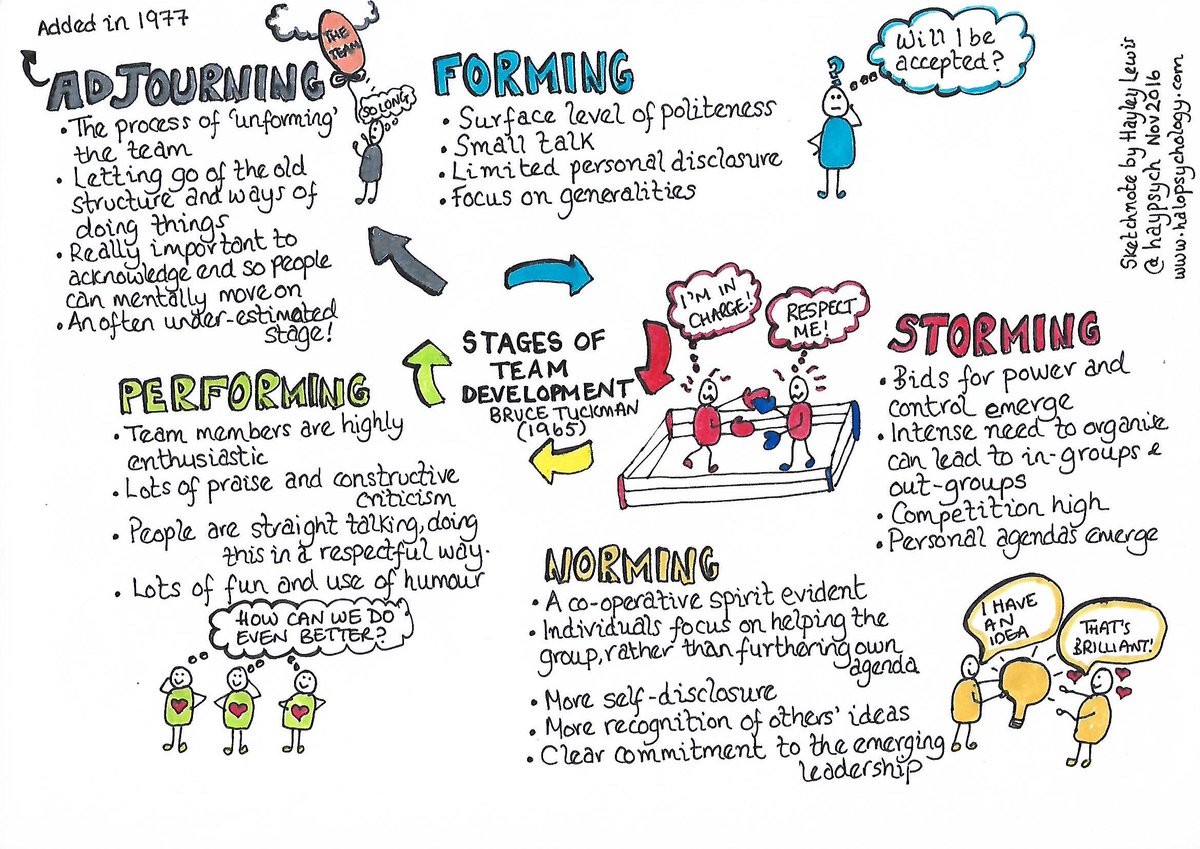 Added in 1977
ADJOURNING
• The process of 'unforming'
the team
• Letting go of the old
structure and ways of
doing things
• Really important to
acknowledge end so people
can mentally move on
• An often under-estimated
stage!
THE
TEAM
SO LONG
FORMING
• Surface level of politeness
• Small talk
• Limited personal disclosure
• Focus on generalities
?
Will I be
accepted?
Sketchnote by Hayley Lewis
@haypsych Nov 2016
www.halopsychology.com
STAGES OF
TEAM
DEVELOPMENT
BRUCE TUCKMAN
(1965)
I'M IN
CHARGE!
RESPECT
ME!
STORMING
• Bids for power and
control emerge
• Intense need to organise
can lead to in-groups &
out-groups
• Competition high
• Personal agendas emerge
PERFORMING
• Team members are highly
enthusiastic
• Lots of praise and constructive
criticism
• People are straight talking, doing
this in a respectful way.
• Lots of fun and use of humour
HOW CAN WE DO
EVEN BETTER?
NORMING
• A co-operative spirit evident
• Individuals focus on helping the
group, rather than furthering own
agenda
• More self-disclosure
• More recognition of others' ideas
• Clear commitment to the emerging
leadership
I HAVE
AN
IDEA
THAT'S
BRILLIANT!